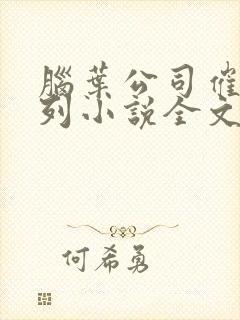 腦葉公司催
列小說全文
何希勇